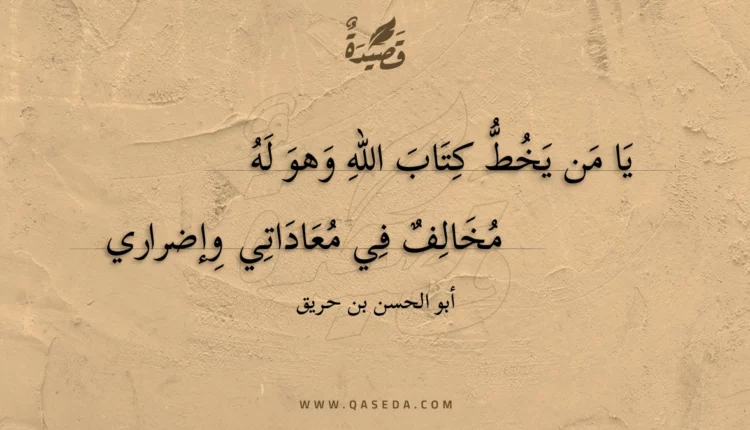 قَصِيْدَةٌ
يَا مَن يَخُطُّ كِتَابَ اللهِ وَهوَ لَهُ
مُخَالِفٌ فِي مُعَادَاتِي وِإضراري
أبو الحسن بن حريق
WWW.QASEDA.COM